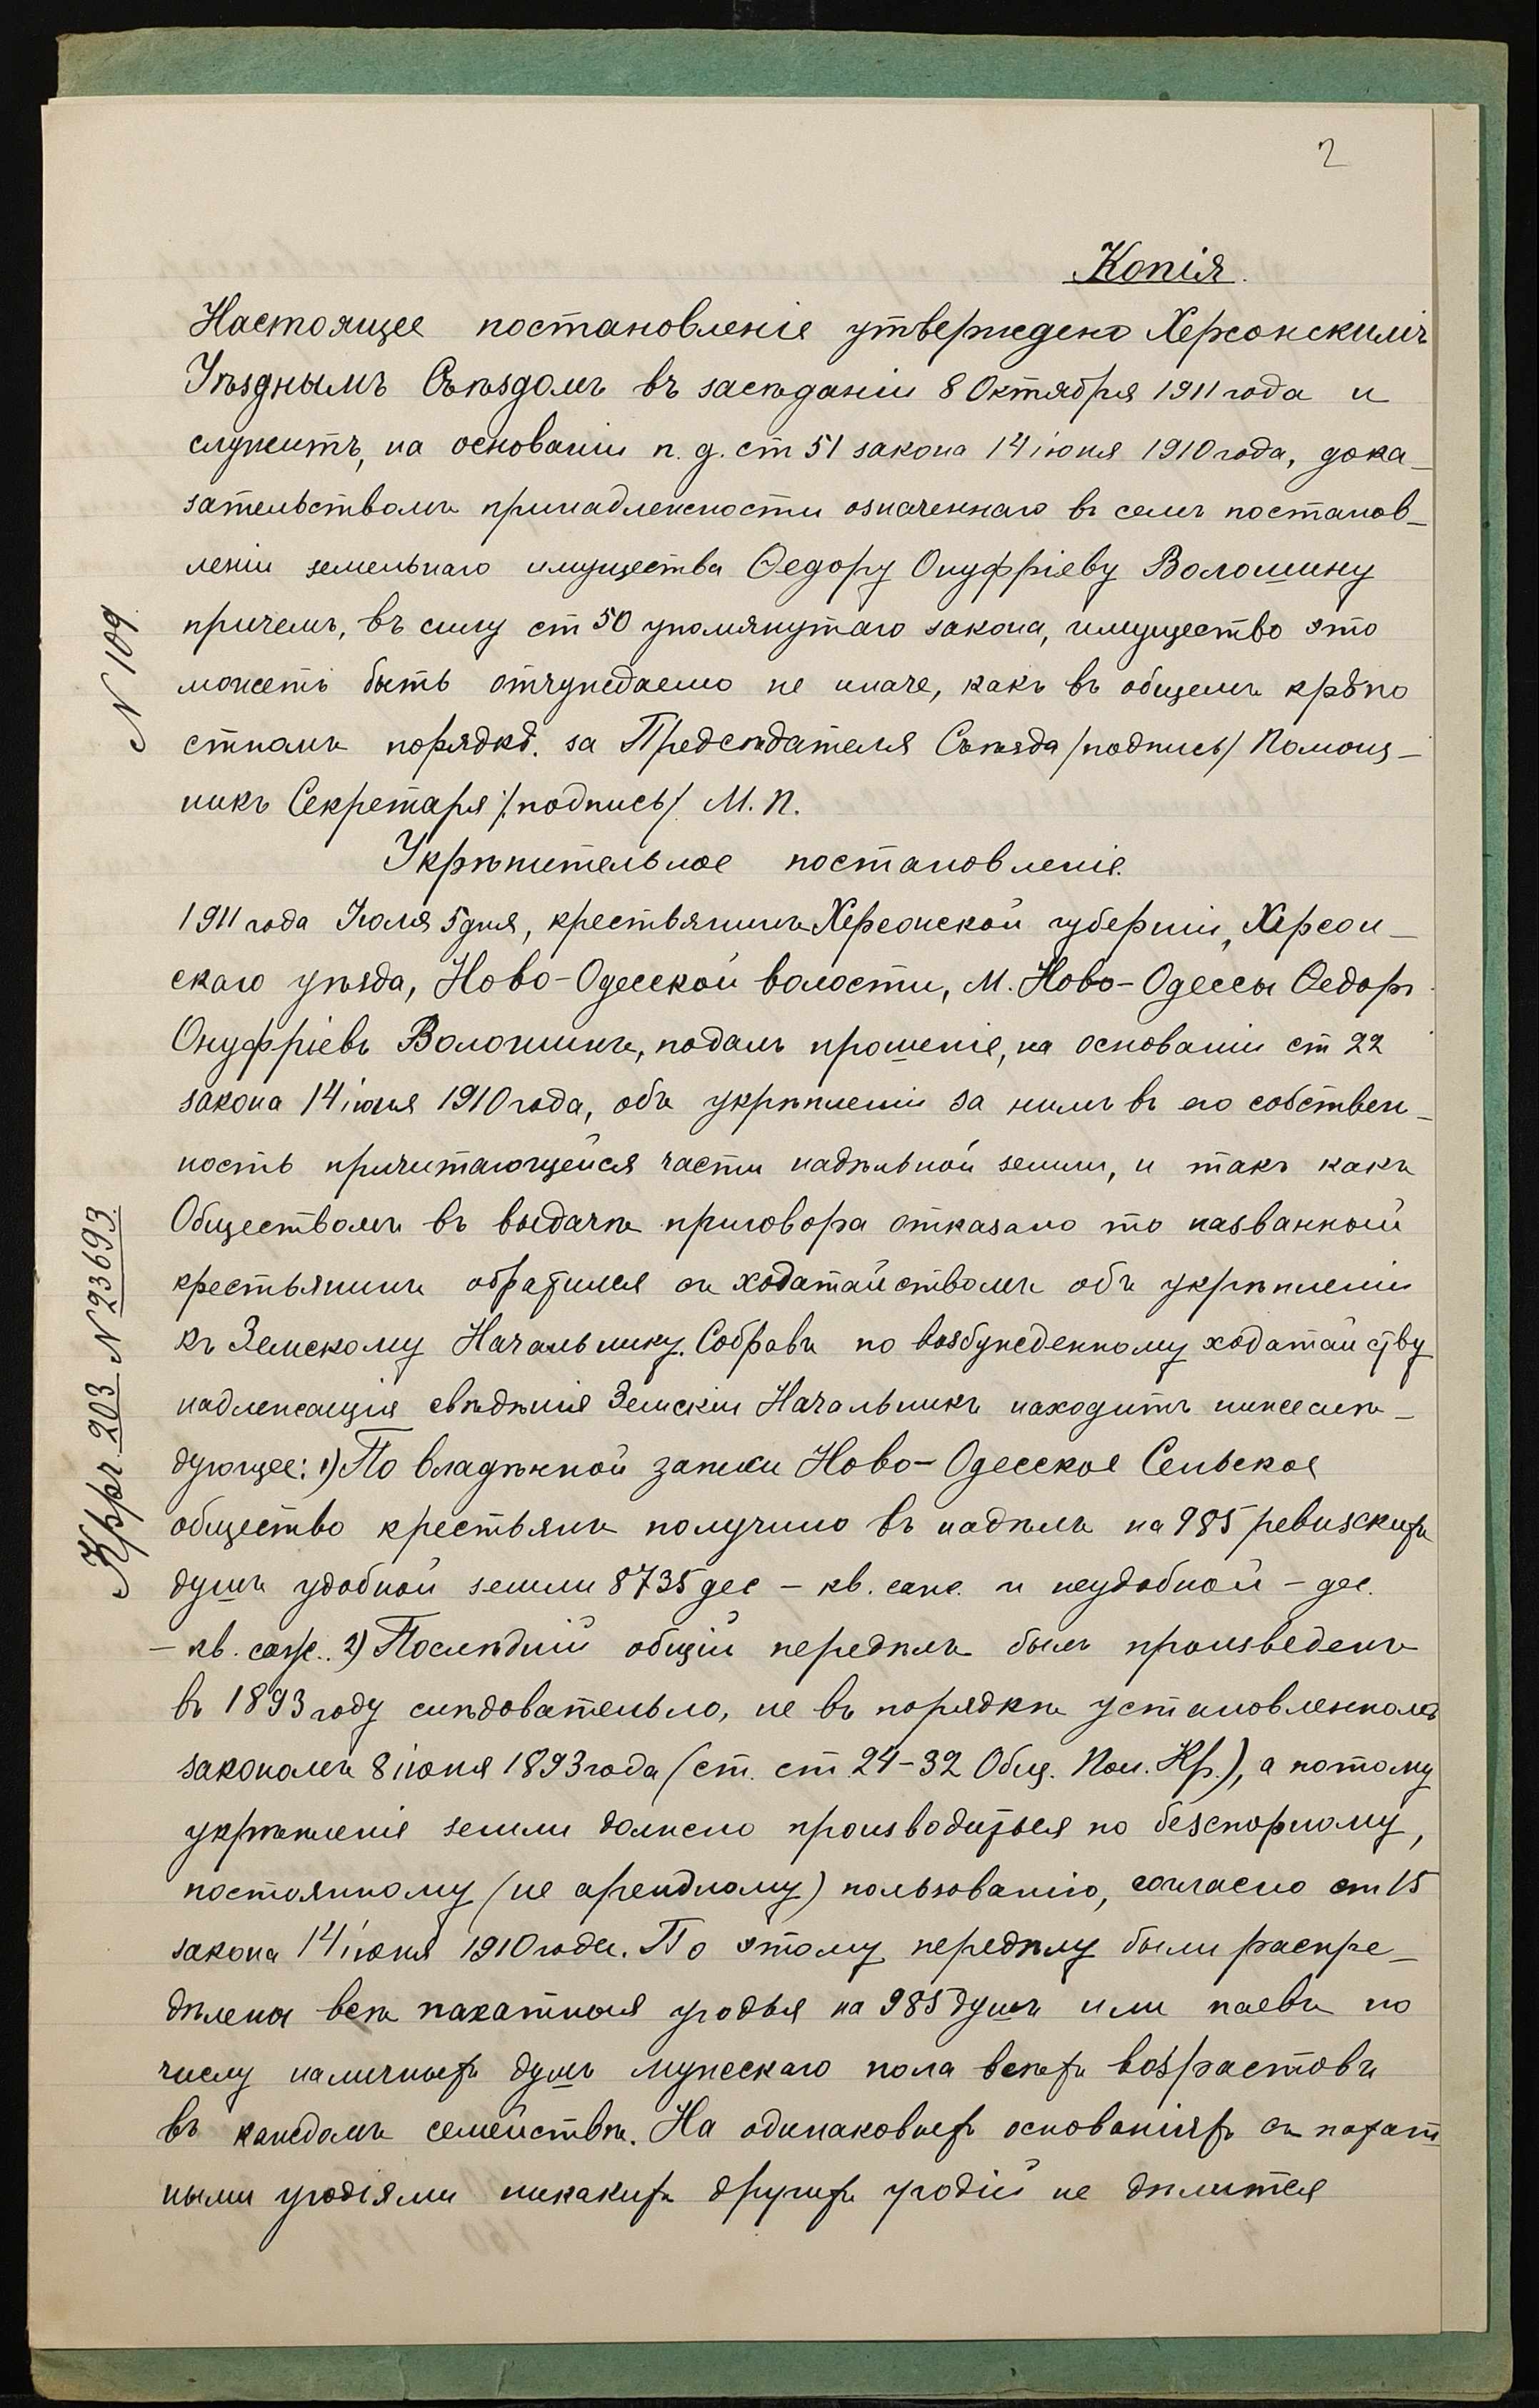 2
Копія.
Настоящее постановленіе утверждено Херсонскимъ
Уѣзднымъ Съѣздомъ въ засѣданіи 8 Октября 1911 года и
служитъ, на основаніи п. д. ст 51 закона 14 іюня 1910 года, дока-
зательствомъ принадлежности означеннаго въ семъ постанов-
леніи земельнаго имущества Ѳедору Онуфріеву Волошину
причемъ, въ силу ст 50 упомянутаго закона, имущество это
можетъ быть отчуждаемо не иначе, какъ въ общемъ крѣпо
стномъ порядкѣ. за Предсѣдателя Съѣзда /подпись/ Помощ-
никъ Секретаря /подпись/ М. П.
Укрѣпительное постановленіе.
1911 года Іюля 5 дня, крестьянинъ Херсонской губерніи, Херсон-
скаго уѣзда, Ново-Одесской волости, м. Ново-Одессы Ѳедоръ
Онуфріевъ Волошинъ, подалъ прошеніе, на основаніи ст 22
закона 14 іюня 1910 года, объ укрѣпленіи за нимъ въ его собствен-
ность причитающейся части надѣльной земли, и такъ какъ
Обществомъ въ выдачѣ приговора отказано то названной
крестьянинъ обратился съ ходатайствомъ объ укрѣпленіи
къ Земскому Начальнику. Собравъ по возбужденному ходатайству
надлежащія свѣдѣнія Земскій Начальникъ находитъ нижеслѣ-
дующее: 1) По владѣнной записи Ново-Одесское Сельское
общество крестьянъ получило въ надѣлъ на 985 ревизскихъ
душъ удобной земли 8735 дес - кв. саж. и неудобной - дес.
- кв. саж.. 2) Послѣдній общій передѣлъ былъ произведенъ
въ 1893 году слѣдовательно, не въ порядкѣ установленномъ
закономъ 8 іюня 1893 года (ст. ст 24-32 Общ. Пол. Кр.), а потому
укрѣпленіе земли должно производиться по безспорному,
постоянному (не арендному) пользованію, согласно ст 15
закона 14 іюня 1910 года. По этому передѣлу были распре-
дѣлены всѣ пахатныя угодья на 985 душъ или паевъ по
числу наличныхъ душъ мужескаго пола всѣхъ возрастовъ
въ каждомъ семействѣ. На одинаковыхъ основаніяхъ съ пахат
ными угодіями никакихъ другихъ угодій не дѣлится
N 109
Крр. 203 N 23693